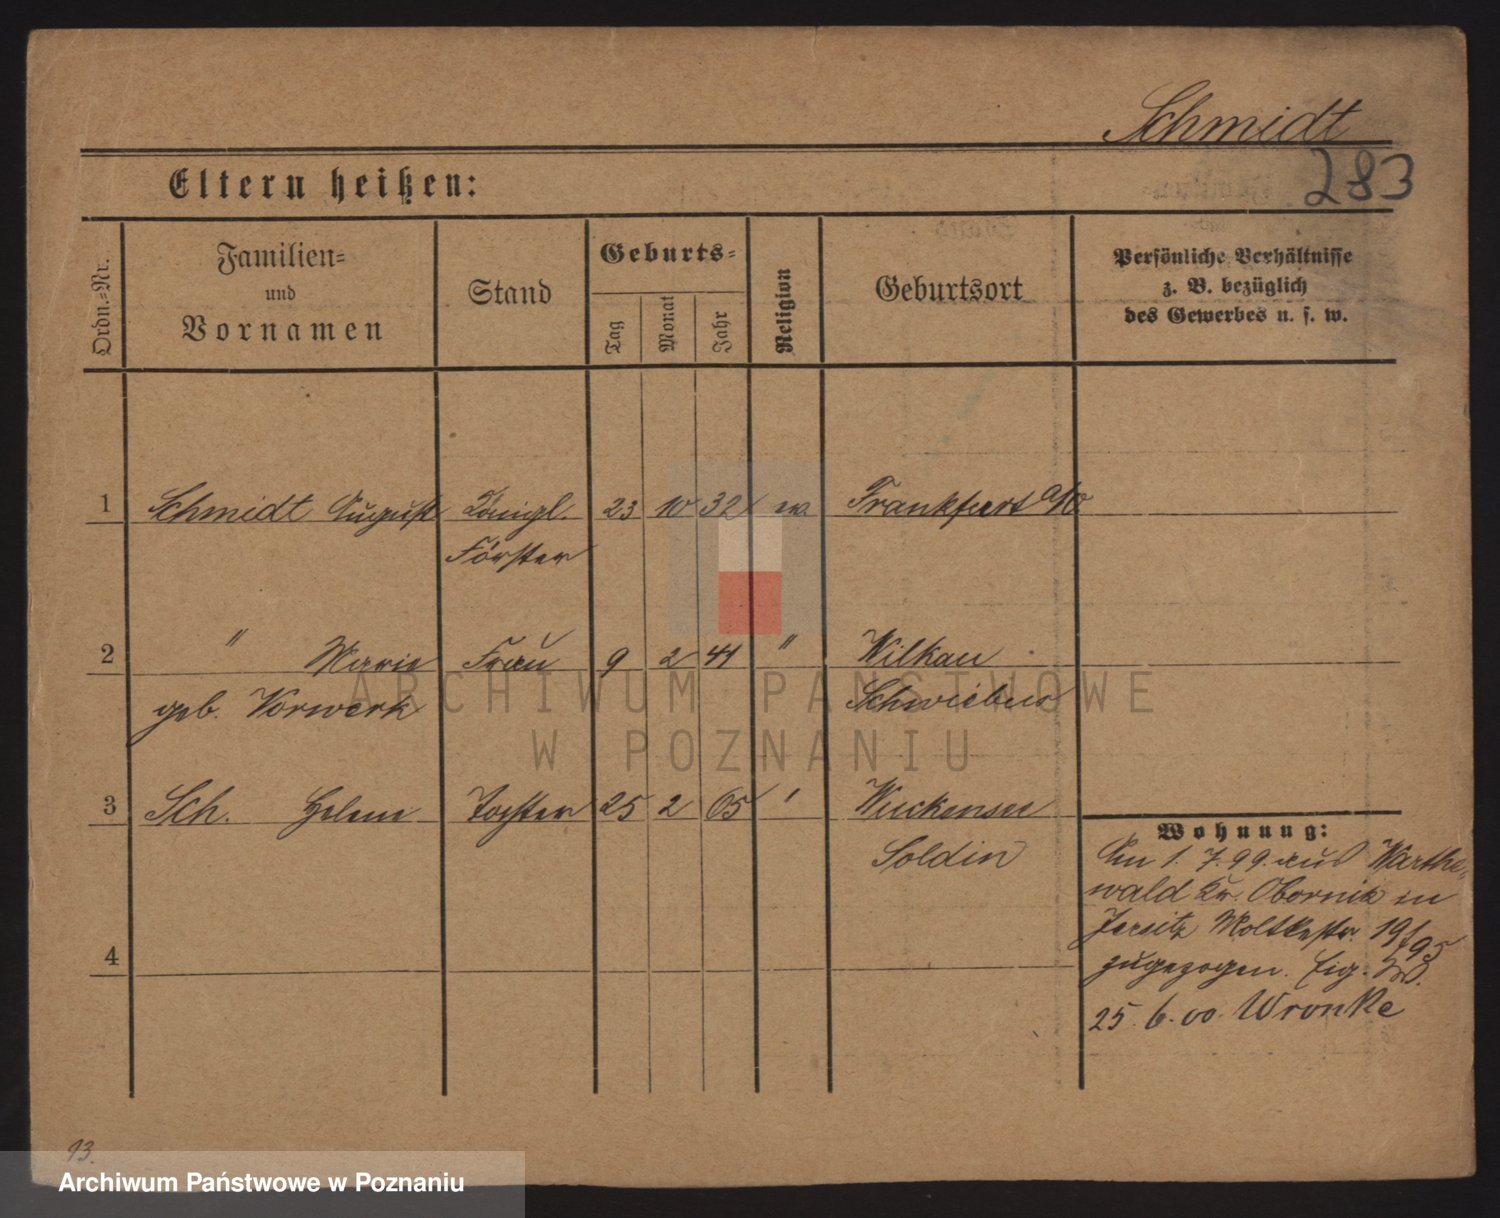 Schmidt
283
Eltern heißen:
Ordn.=Nr.
Familien=
und
Vornamen
Stand
Geburts=
Tag
Monat
Jahr
Religion
Geburtsort
Persönliche Verhältnisse
z. B. bezüglich
des Gewerbes u. s. w.
1 Schmidt August Königl. 23 10 32 ev. Frankfurt a/O
Förster
2 " Marie Frau 9 2 41 " Wilkau
geb. Vorwerk Schwiebus
3 Sch. Helene Tochter 25 2 65 " Wuckensee
Soldin
4
Wohnung:
Am 1. 7. 99. aus Warthe-
wald Kr. Obornik in
Jersitz Moltkestr. 19/95
zugezogen. Eig.
25. 6. 00 Wronke
93.
ARCHIWUM PAŃSTWOWE
W POZNANIU
Archiwum Państwowe w Poznaniu